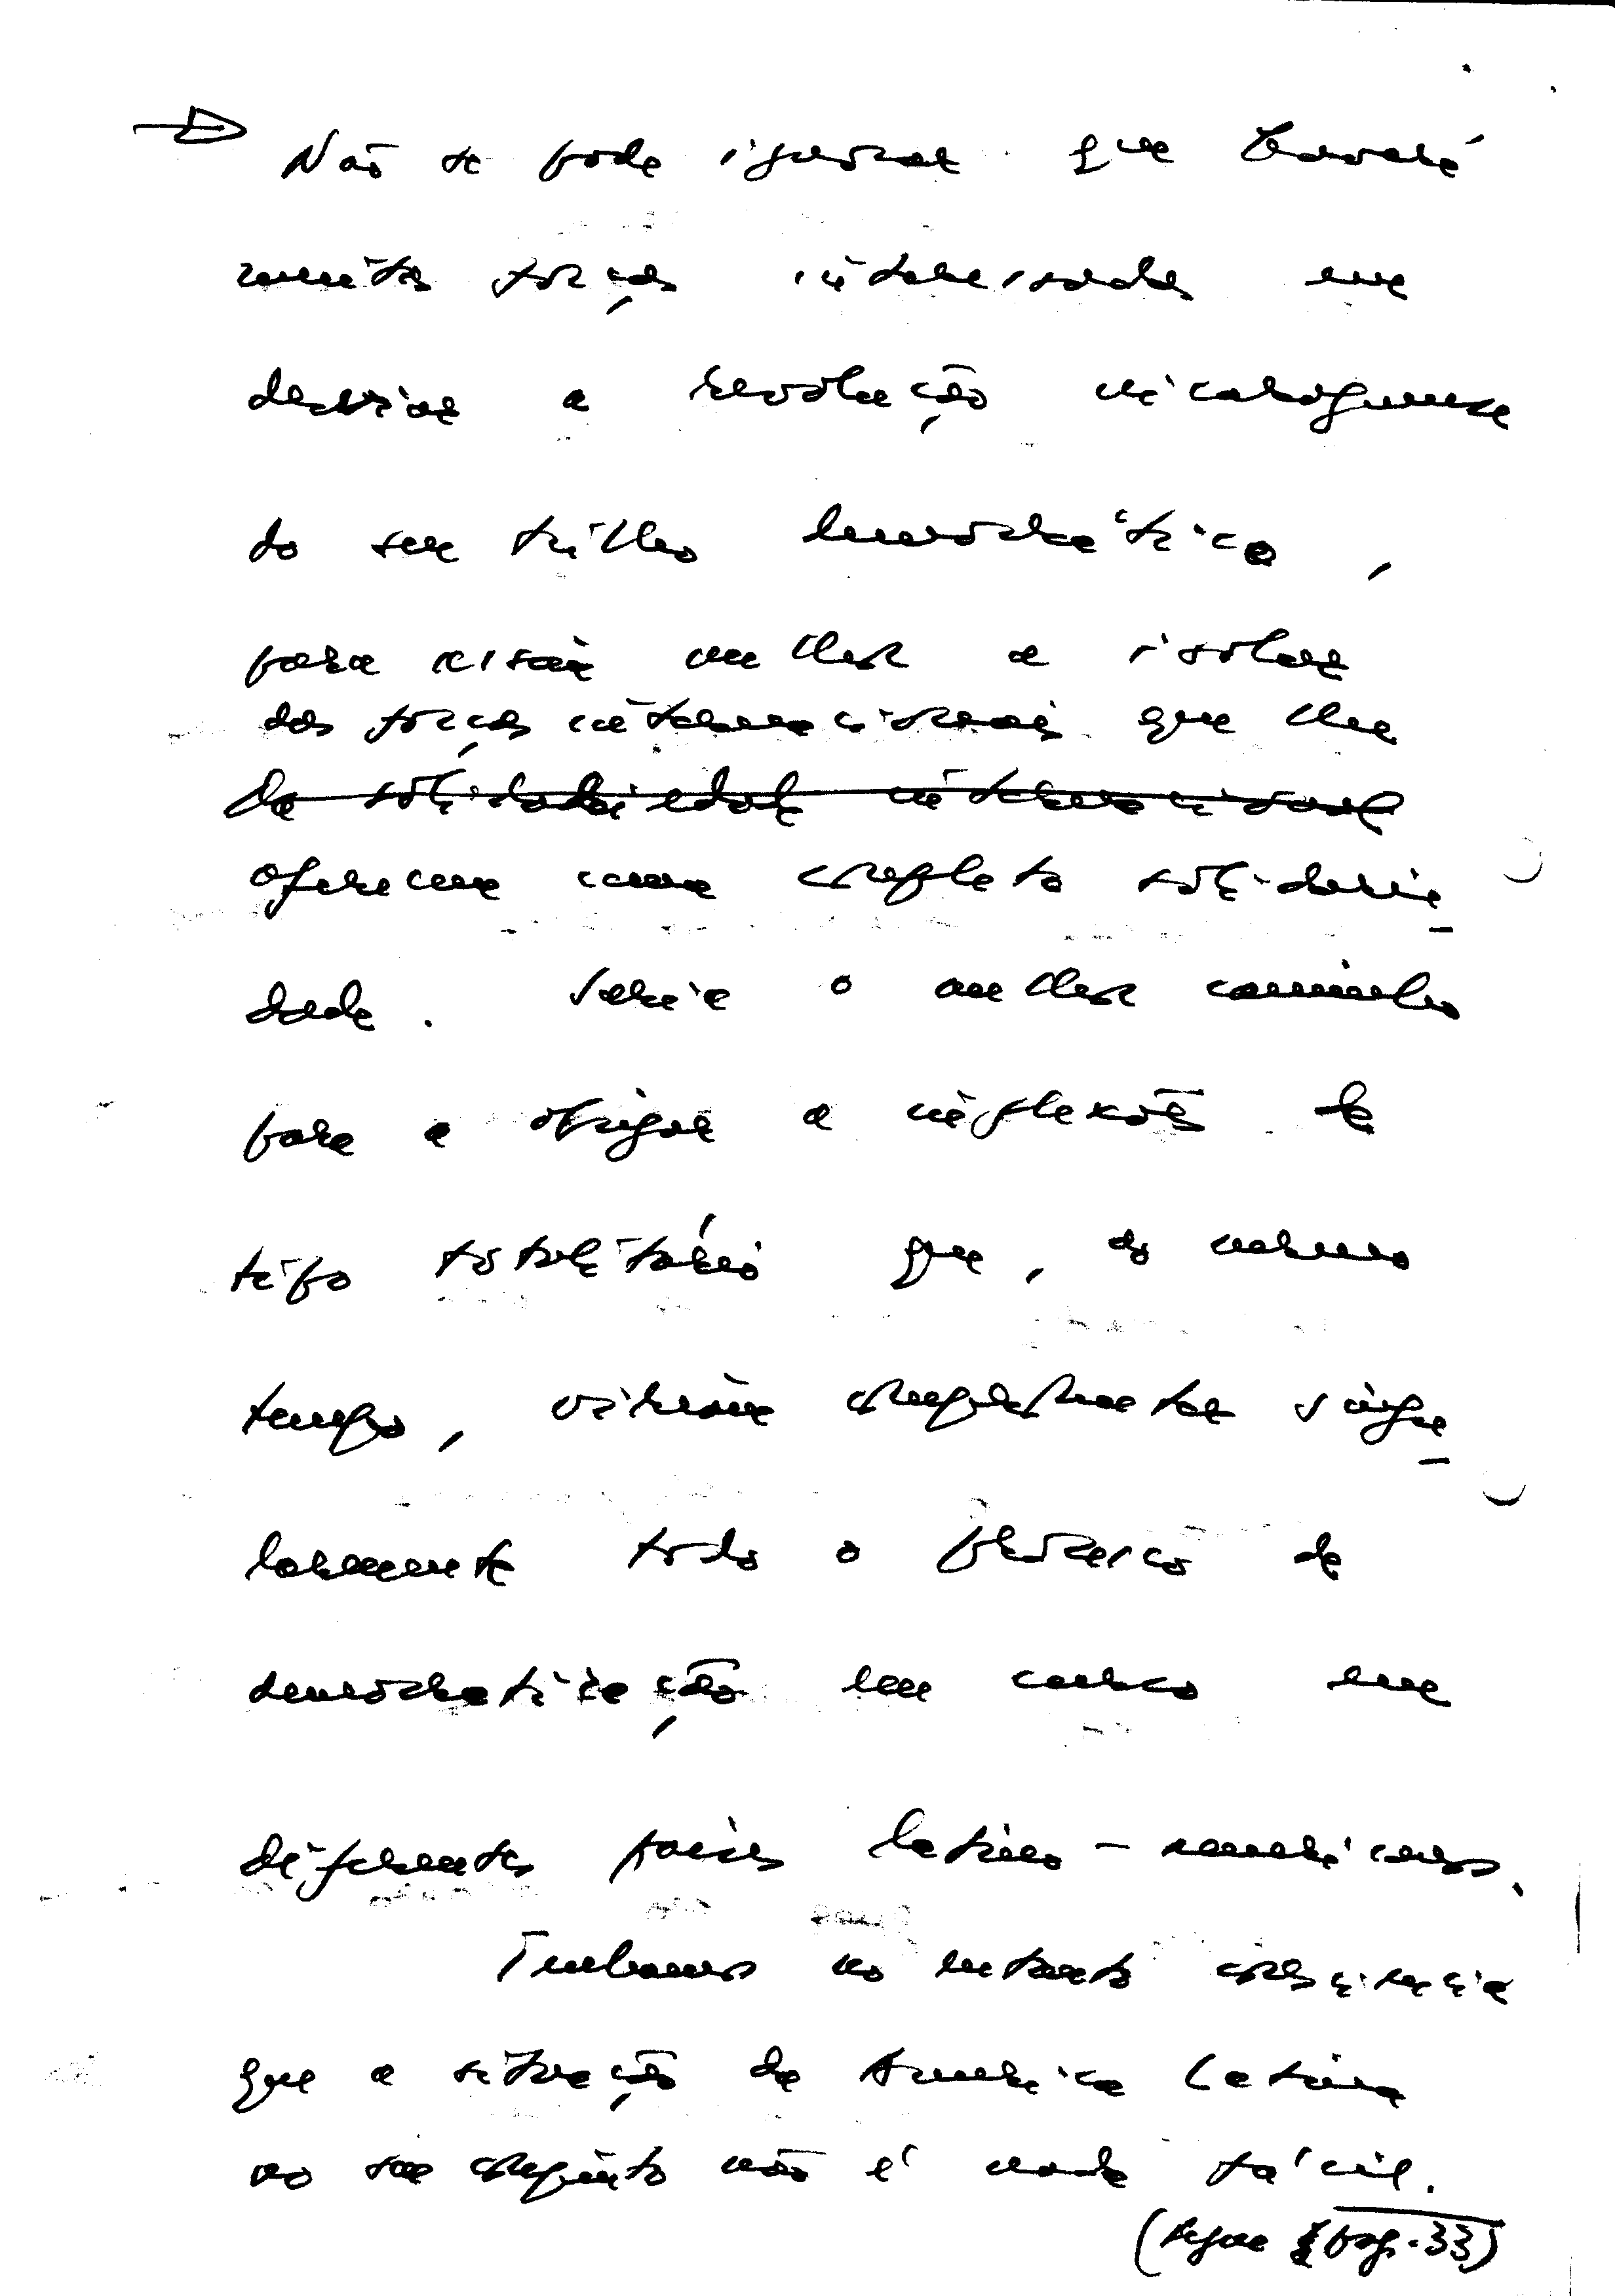 Não se pode ignorar que haverá
muitas forças interessadas em
desviar a revolução nicaraguense
do seu trilho democrático,
para assim melhor a isolar
das forças internacionais que lhe
da solidariedade internacional
oferecem uma completa solidarie
dade. Seria o melhor caminho
para a obrigar a inflexões de
tipo totalitário que, ao mesmo
tempo, viriam comprometer singu
larmente todo o processo de
democratização em curso em
diferentes países latino-americanos.
Tenhamos no entanto consciência
que a situação da América Latina
no seu conjunto não é nada fácil.
(segue pág. 33)